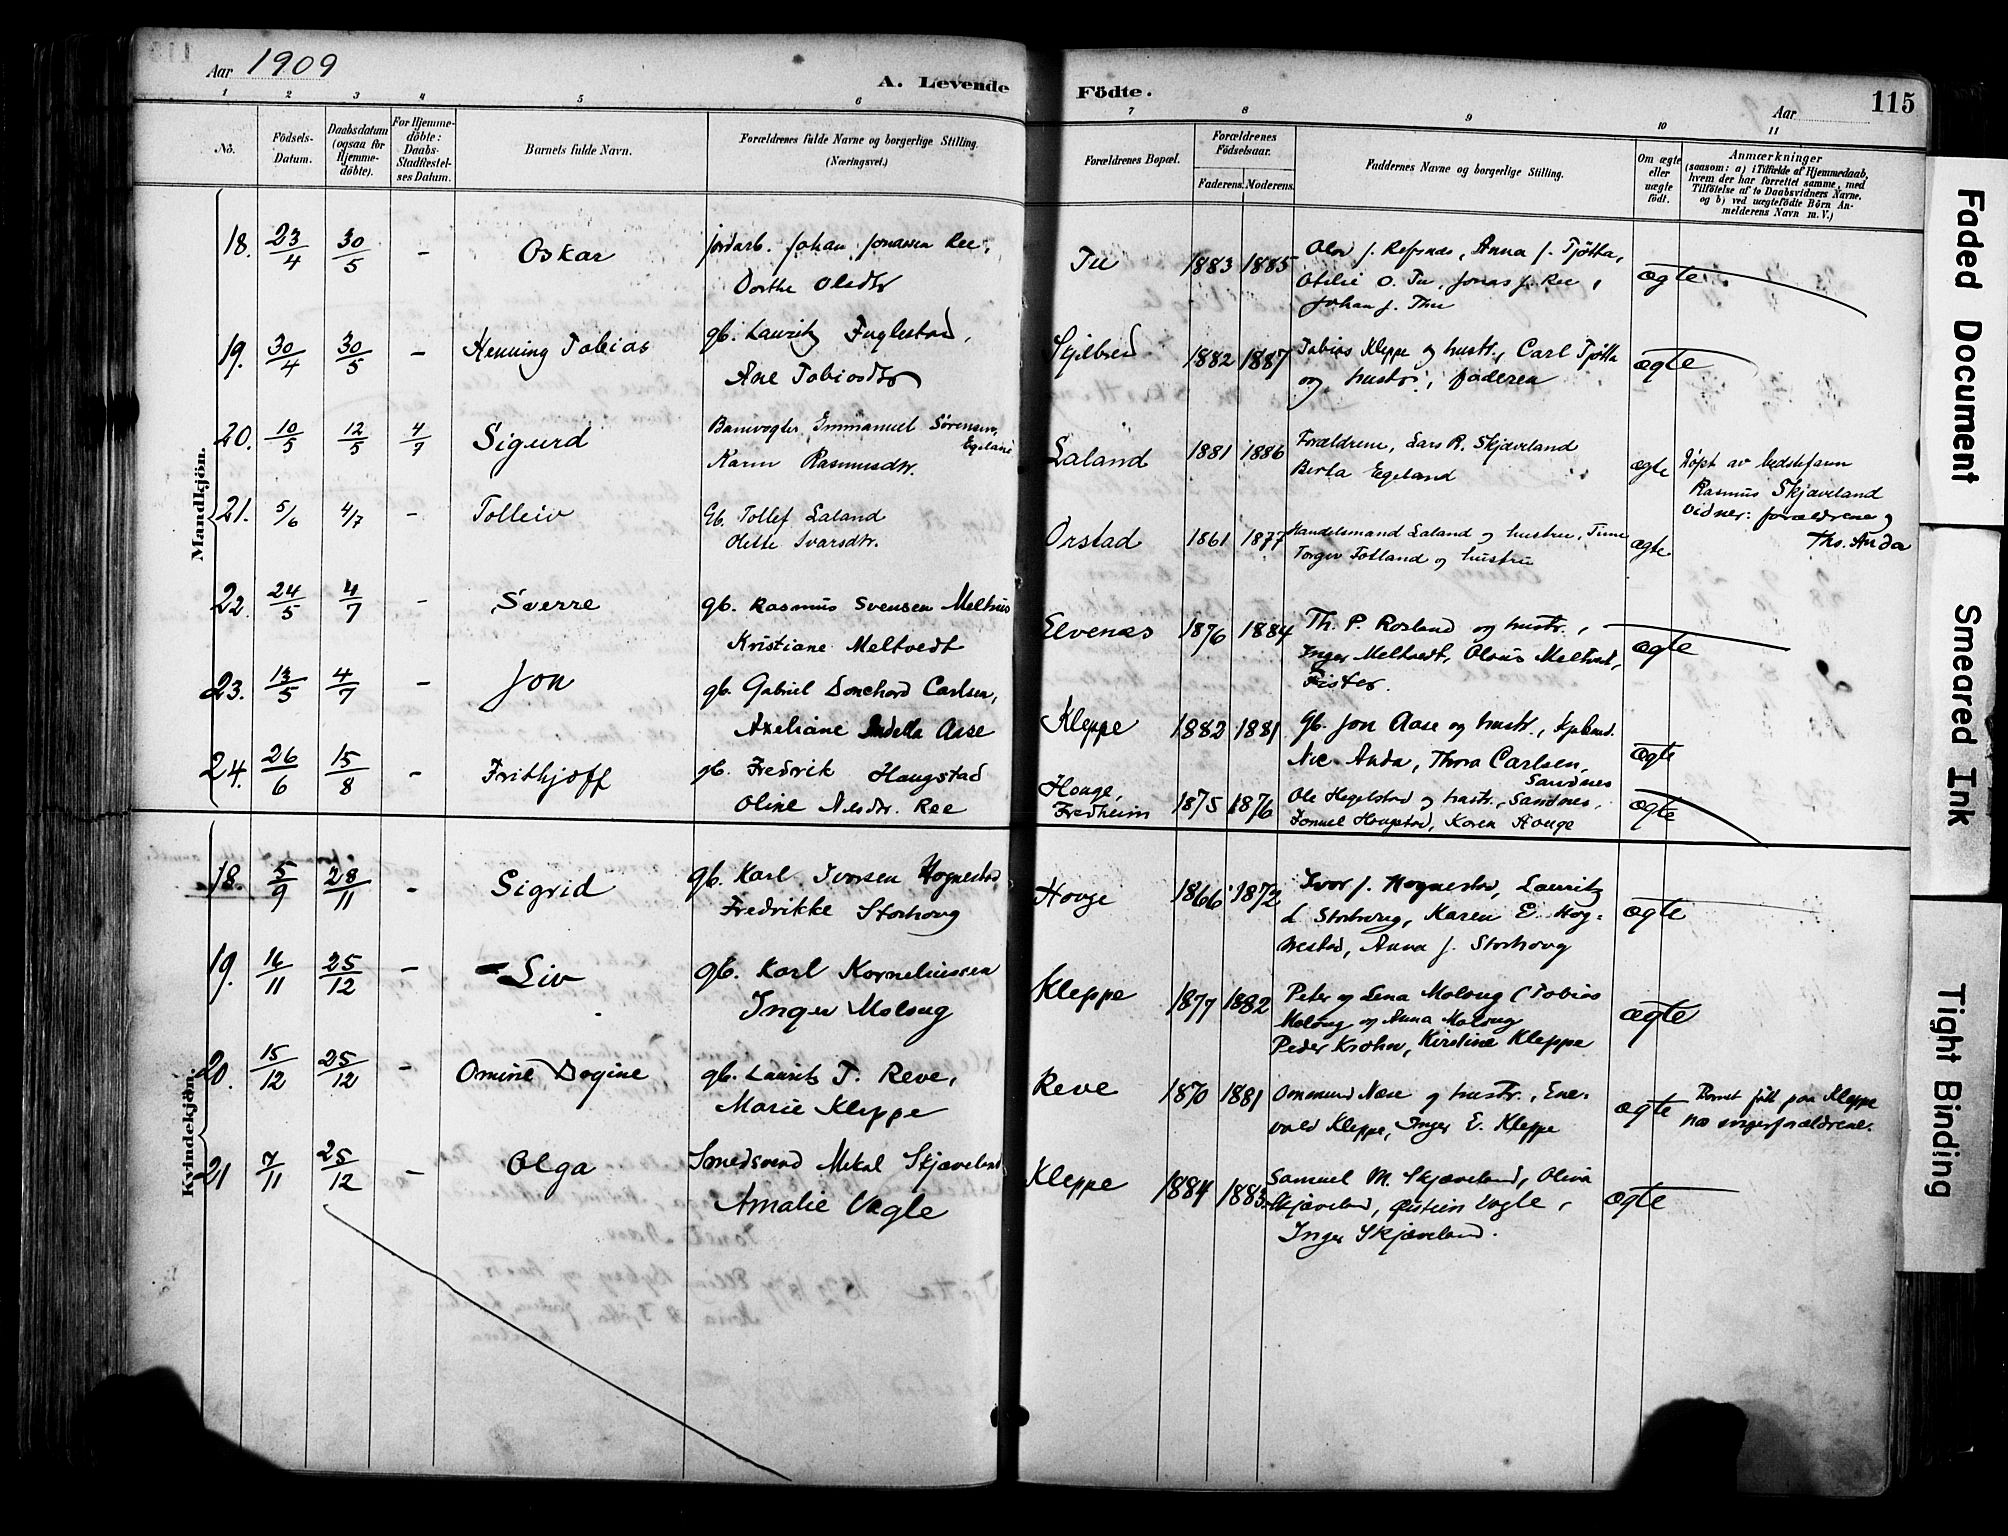 Aar 1909
A. Levende Födte.
Aar
115
1 2 3 4 5 6 7 8 9 10 11
No.
Födsels-Datum.
Daabsdatum (ogsaa for Hjemme-döbte).
For Hjemme-döbte: Daabs-Stadfæstel-ses Datum.
Barnets fulde Navn.
Forældrenes fulde Navne og borgerlige Stilling. (Næringsvei.)
Forældrenes Bopæl.
Forældrenes Födselsaar.
Faderens. Moderens.
Faddernes Navne og borgerlige Stilling.
Om ægte eller uægte födt.
Anmærkninger
(saasom: a) i Tilfælde af Hjemmedaab,
hvem der har forrettet samme, med
Tilföielse af to Daabsvidners Navne.
og b) ved uægtefödte Börn An-
melderens Navn m. V.)
Mandkjön.
18. 23/4 30/5 - Oskar
jordarb. Johan Jonassen Ree,
Dorthe Olsdtr
Tu 1883 1885
Olav J. Refsnes, Anna J. Tjøtta,
Otilie O. Tu, Jonas J. Ree,
Johan J. Thu
ægte
19. 30/4 30/5 - Henning Tobias
gb. Lauritz Fuglestad,
Ane Tobiasdtr
1882 1887
Tobias Kleppe og hustr., Carl Tjøtta
og hustr., faderen
ægte
20. 10/5 12/5 4/7 Sigurd
Banevogter Emmanuel Sörensen
Egeland
Karen Rasmusdtr.
Laland 1881 1886
Forældrene, Lars R. Skjæveland
Berta Egeland
ægte
Döpt av bedstefaren
Rasmus Skjæveland
vidner: forældrene og
Ths. Anda
21. 5/6 4/7 - Tolleiv
Gb. Tollef Laland
Olette Ivarsdtr.
Orstad 1861 1877
Handelsmand Laland og hustru, Time
Torger Totland og hustru
ægte
22. 24/5 4/7 - Sverre
gb. Rasmus Svensen Melhus
Kristiane Meltvedt
Elvenes 1876 1884
Th. P. Rosland og hustr.,
Inger Meltvedt, Olaus Meltvedt,
Fister.
ægte
23. 13/5 4/7 - Jon
gb. Gabriel Carlsen,
Axeliane Aase
Kleppe 1882 1881
Gb. Jon Aase og hustr.,
Nic. Anda, Thora Carlsen,
Sandnes
ægte
24. 26/6 15/8 - Frithjoff
gb. Fredrik Haugstad
Oline Nilsdtr. Ree
Houge,
Fredheim 1875 1876
Ole Hegelstad og hustr., Sandnes,
Haugstad, Karen Houge
ægte
Kvindekjön.
18. 5/9 28/11 - Sigrid
gb. Karl Iversen Hognestad
Fredrikke Storhoug
Houge 1866 1872
Ivar J. Hognestad, Lauritz
L Storhoug, Karen E. Hog-
nestad, Anna J. Storhoug
ægte
19. 16/11 25/12 - Liv
gb. Karl Korneliussen
Inger Malaug
Kleppe 1877 1882
Peter og Lena Malaug (Tobias
Malaug og Anna Malaug
Peder Krohn, Kirstine Kleppe
ægte
20. 15/12 25/12 - Omine Dagine
gb. Laurits T. Reve,
Marie Kleppe
Reve 1870 1881
Ommund Næse og hustr., Ene-
vald Kleppe, Inger E. Kleppe
ægte
Barnet født paa Kleppe
hos svigerforældrene.
21 7/11 25/12 - Olga
Smedsvend Mikal Skjæveland
Amalie Vagle
Kleppe 1884 1883
Samuel M. Skjæveland, Olina
Skjæveland, Østein Vagle,
Inger Skjæveland.
ægte
Faded Document
Smeared Ink
Tight Binding